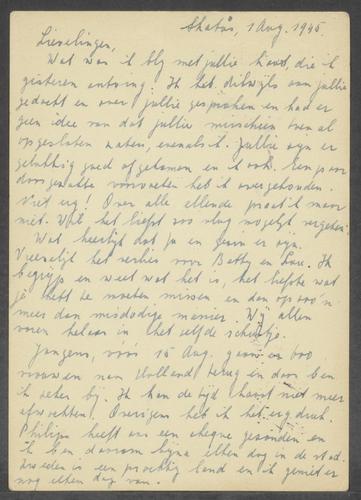 Skatås, 1 Aug. 1945.
Lievelingen,
Wat was ik blij met jullie kaart, die ik
gisteren ontving. Ik heb dikwijls aan jullie
gedacht en over jullie gesproken en had er
geen idee van dat jullie misschien toen al
opgesloten waren, evenals ik. Jullie zijn er
gelukkig goed afgekomen en ik ook. Een paar
doorgezakte voorvoeten heb ik overgehouden.
Niet erg! Over alle ellende praat ik maar
niet. Wil het liefst zoo vlug mogelijk vergeten.
Wat heerlijk dat Jo en gezin er zijn.
Vreeselijk het verlies voor Betty en Loe. Ik
begrijp en weet wat het is, het liefste wat
je hebt te moeten missen en dan op zoo'n
meer dan misdadige manier. Wij allen
varen helaas in het zelfde schuitje.
Jongens, vóór 15 Aug. gaan er 600
vrouwen naar Holland terug en daar ben
ik zeker bij. Ik kan de tijd haast niet meer
afwachten. Overigens heb ik het erg druk.
Philips heeft ons een cheque gezonden en
ik ben daarom bijna elken dag in de stad.
Zweden is een prachtig land en ik geniet er
nog elken dag van.